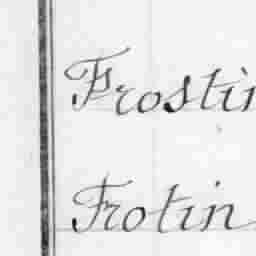 Frostin
Frotin